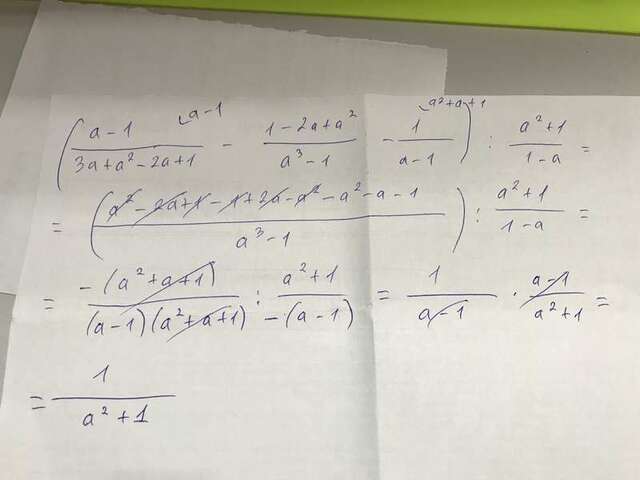 ( (a-1)/(3a+a²-2a+1) ⌞a-1 - (1-2a+a²)/(a³-1) - 1/(a-1) ⌞a²+a+1 ) : (a²+1)/(1-a) =
= ( (a²-2a+1-1+2a-a²-a²-a-1)/(a³-1) ) : (a²+1)/(1-a) =
= (-(a²+a+1))/((a-1)(a²+a+1)) : (a²+1)/(-(a-1)) = 1/(a-1) · (a-1)/(a²+1) =
= 1/(a²+1)